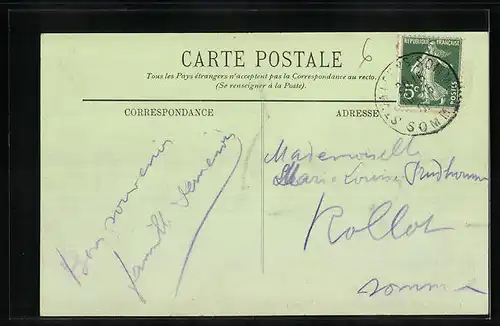 CARTE POSTALE
Tous les Pays étrangers n'acceptent pas la Correspondance au recto.
(Se renseigner à la Poste).
CORRESPONDANCE
ADRESSE
6
REPUBLIQUE FRANÇAISE
5c
POSTES
SOMME
Bon souvenir
famille
Mademoiselle
Marie-Louise Prudhomme
Rollot
Somme